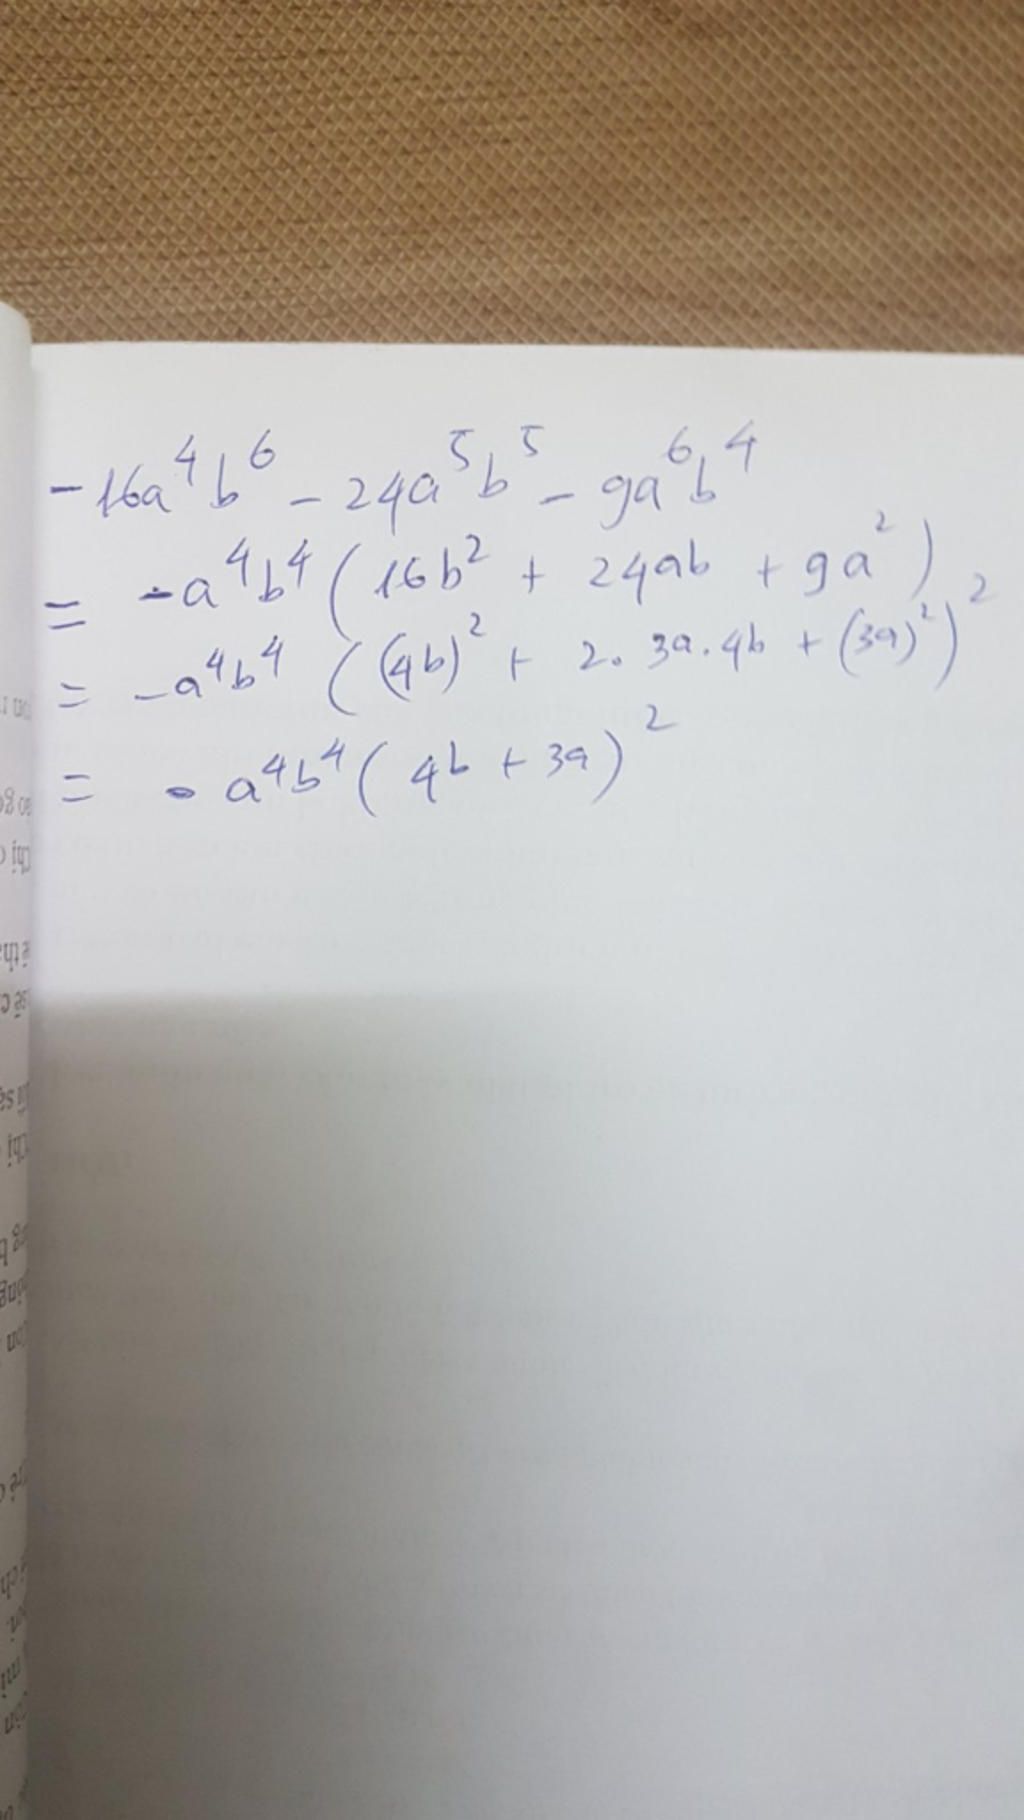 -16a⁴b⁶ - 24a⁵b⁵ - 9a⁶b⁴
= -a⁴b⁴ (16b² + 24ab + 9a²)
= -a⁴b⁴ ((4b)² + 2. 3a. 4b + (3a)²)²
= - a⁴b⁴ (4b + 3a)²